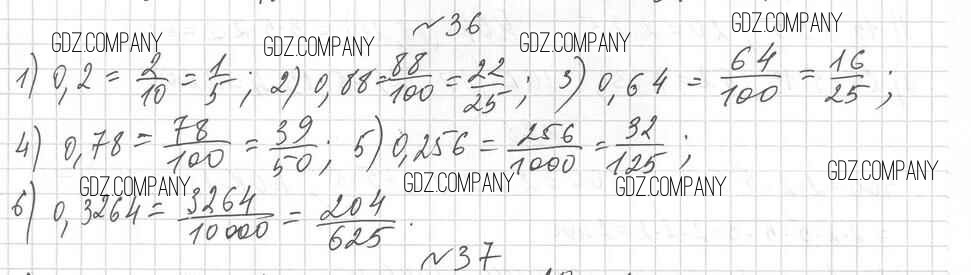 №36
GDZ.COMPANY GDZ.COMPANY GDZ.COMPANY GDZ.COMPANY
1) 0,2 = 2/10 = 1/5; 2) 0,88 = 88/100 = 22/25; 3) 0,64 = 64/100 = 16/25;
4) 0,78 = 78/100 = 39/50; 5) 0,256 = 256/1000 = 32/125;
GDZ.COMPANY GDZ.COMPANY GDZ.COMPANY GDZ.COMPANY
6) 0,3264 = 3264/10000 = 204/625.
№37